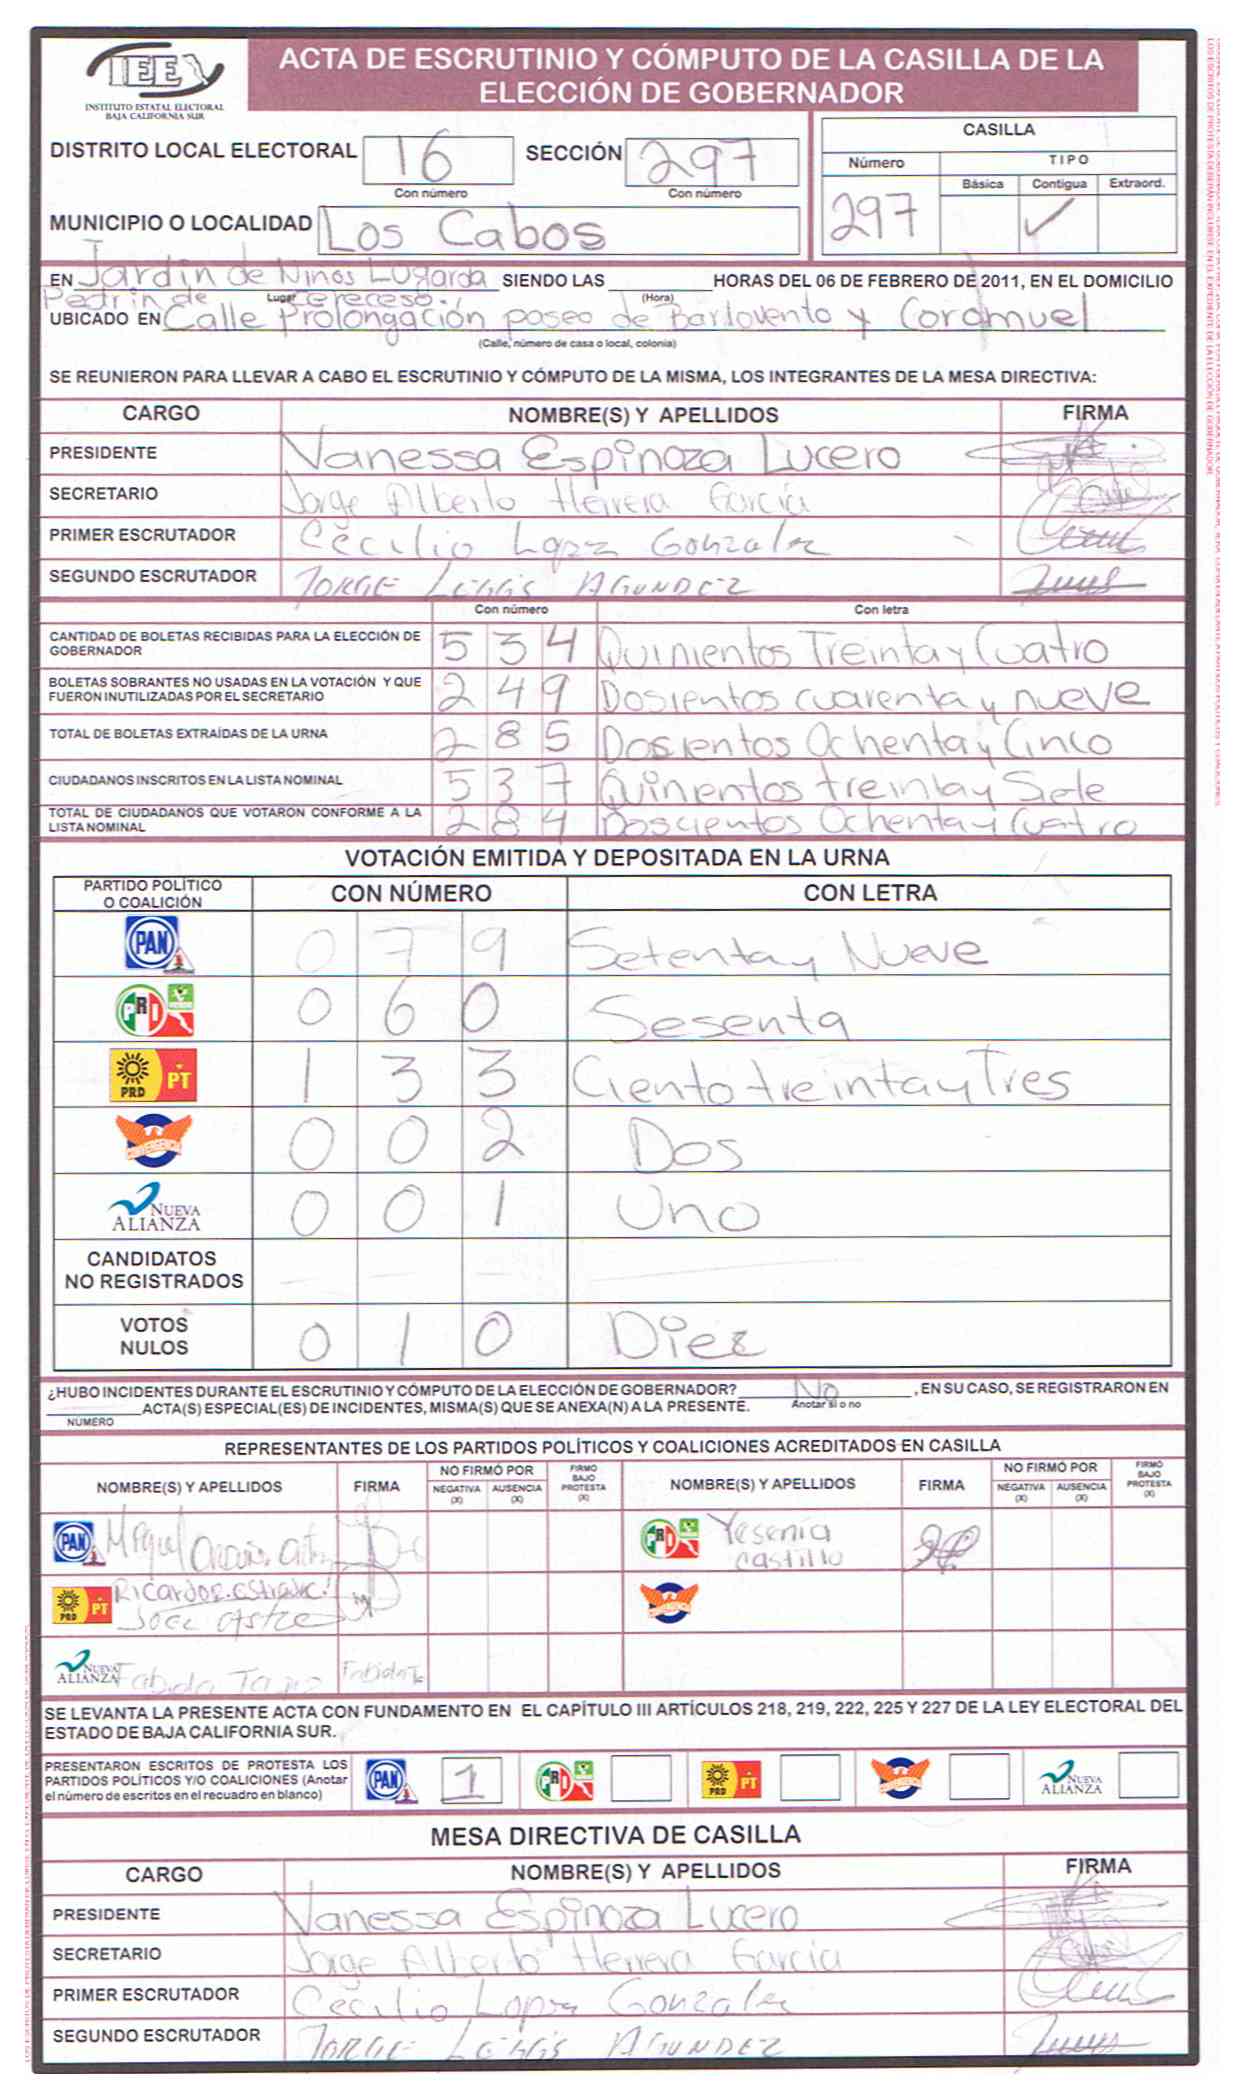 IEE
INSTITUTO ESTATAL ELECTORAL
BAJA CALIFORNIA SUR
ACTA DE ESCRUTINIO Y CÓMPUTO DE LA CASILLA DE LA
ELECCIÓN DE GOBERNADOR
DISTRITO LOCAL ELECTORAL 16 SECCIÓN 297
Con número Con número
MUNICIPIO O LOCALIDAD Los Cabos
CASILLA
Número TIPO
Básica Contigua Extraord.
297 ✓
EN Jardín de Niños Lugarda SIENDO LAS HORAS DEL 06 DE FEBRERO DE 2011, EN EL DOMICILIO
Pedrin de cereceso.,
Lugar (Hora)
UBICADO EN Calle Prolongación paseo de Barlovento y Coromuel
(Calle, número de casa o local, colonia)
SE REUNIERON PARA LLEVAR A CABO EL ESCRUTINIO Y CÓMPUTO DE LA MISMA, LOS INTEGRANTES DE LA MESA DIRECTIVA:
CARGO NOMBRE(S) Y APELLIDOS FIRMA
PRESIDENTE Vanessa Espinoza Lucero
SECRETARIO Jorge Alberto Herrera García
PRIMER ESCRUTADOR Cecilio Lopz Gonzalez
SEGUNDO ESCRUTADOR JORGE LEGGS AGUNDEZ
Con número Con letra
CANTIDAD DE BOLETAS RECIBIDAS PARA LA ELECCIÓN DE
GOBERNADOR 5 3 4 Quinientos Treinta y Cuatro
BOLETAS SOBRANTES NO USADAS EN LA VOTACIÓN Y QUE
FUERON INUTILIZADAS POR EL SECRETARIO 2 4 9 Dosientos cuarenta y nueve
TOTAL DE BOLETAS EXTRAÍDAS DE LA URNA 2 8 5 Dosientos Ochenta y Cinco
CIUDADANOS INSCRITOS EN LA LISTA NOMINAL 5 3 7 Quinientos treinta y Siete
TOTAL DE CIUDADANOS QUE VOTARON CONFORME A LA
LISTA NOMINAL 2 8 4 Doscientos Ochenta y Cuatro
VOTACIÓN EMITIDA Y DEPOSITADA EN LA URNA
PARTIDO POLÍTICO
O COALICIÓN CON NÚMERO CON LETRA
PAN 0 7 9 Setenta y Nueve
PRI 0 6 0 Sesenta
PRD PT 1 3 3 Ciento treinta y Tres
CONVERGENCIA 0 0 2 Dos
NUEVA
ALIANZA 0 0 1 Uno
CANDIDATOS
NO REGISTRADOS — — —
VOTOS
NULOS 0 1 0 Diez
¿HUBO INCIDENTES DURANTE EL ESCRUTINIO Y CÓMPUTO DE LA ELECCIÓN DE GOBERNADOR? No , EN SU CASO, SE REGISTRARON EN
Anotar si o no
ACTA(S) ESPECIAL(ES) DE INCIDENTES, MISMA(S) QUE SE ANEXA(N) A LA PRESENTE.
NÚMERO
REPRESENTANTES DE LOS PARTIDOS POLÍTICOS Y COALICIONES ACREDITADOS EN CASILLA
NOMBRE(S) Y APELLIDOS FIRMA NO FIRMÓ POR NEGATIVA (X) AUSENCIA (X) FIRMÓ BAJO PROTESTA (X) NOMBRE(S) Y APELLIDOS FIRMA NO FIRMÓ POR NEGATIVA (X) AUSENCIA (X) FIRMÓ BAJO PROTESTA (X)
PAN Miguel
PRI Yesenia
Castillo
PRD PT Ricardo
CONVERGENCIA
NUEVA
ALIANZA Fabiola
SE LEVANTA LA PRESENTE ACTA CON FUNDAMENTO EN EL CAPÍTULO III ARTÍCULOS 218, 219, 222, 225 Y 227 DE LA LEY ELECTORAL DEL
ESTADO DE BAJA CALIFORNIA SUR.
PRESENTARON ESCRITOS DE PROTESTA LOS
PARTIDOS POLÍTICOS Y/O COALICIONES (Anotar
el número de escritos en el recuadro en blanco)
PAN 1 PRI PRD PT CONVERGENCIA NUEVA ALIANZA
MESA DIRECTIVA DE CASILLA
CARGO NOMBRE(S) Y APELLIDOS FIRMA
PRESIDENTE Vanessa Espinoza Lucero
SECRETARIO Jorge Alberto Herrera García
PRIMER ESCRUTADOR Cecilio Lopz Gonzalez
SEGUNDO ESCRUTADOR JORGE LEGGS AGUNDEZ